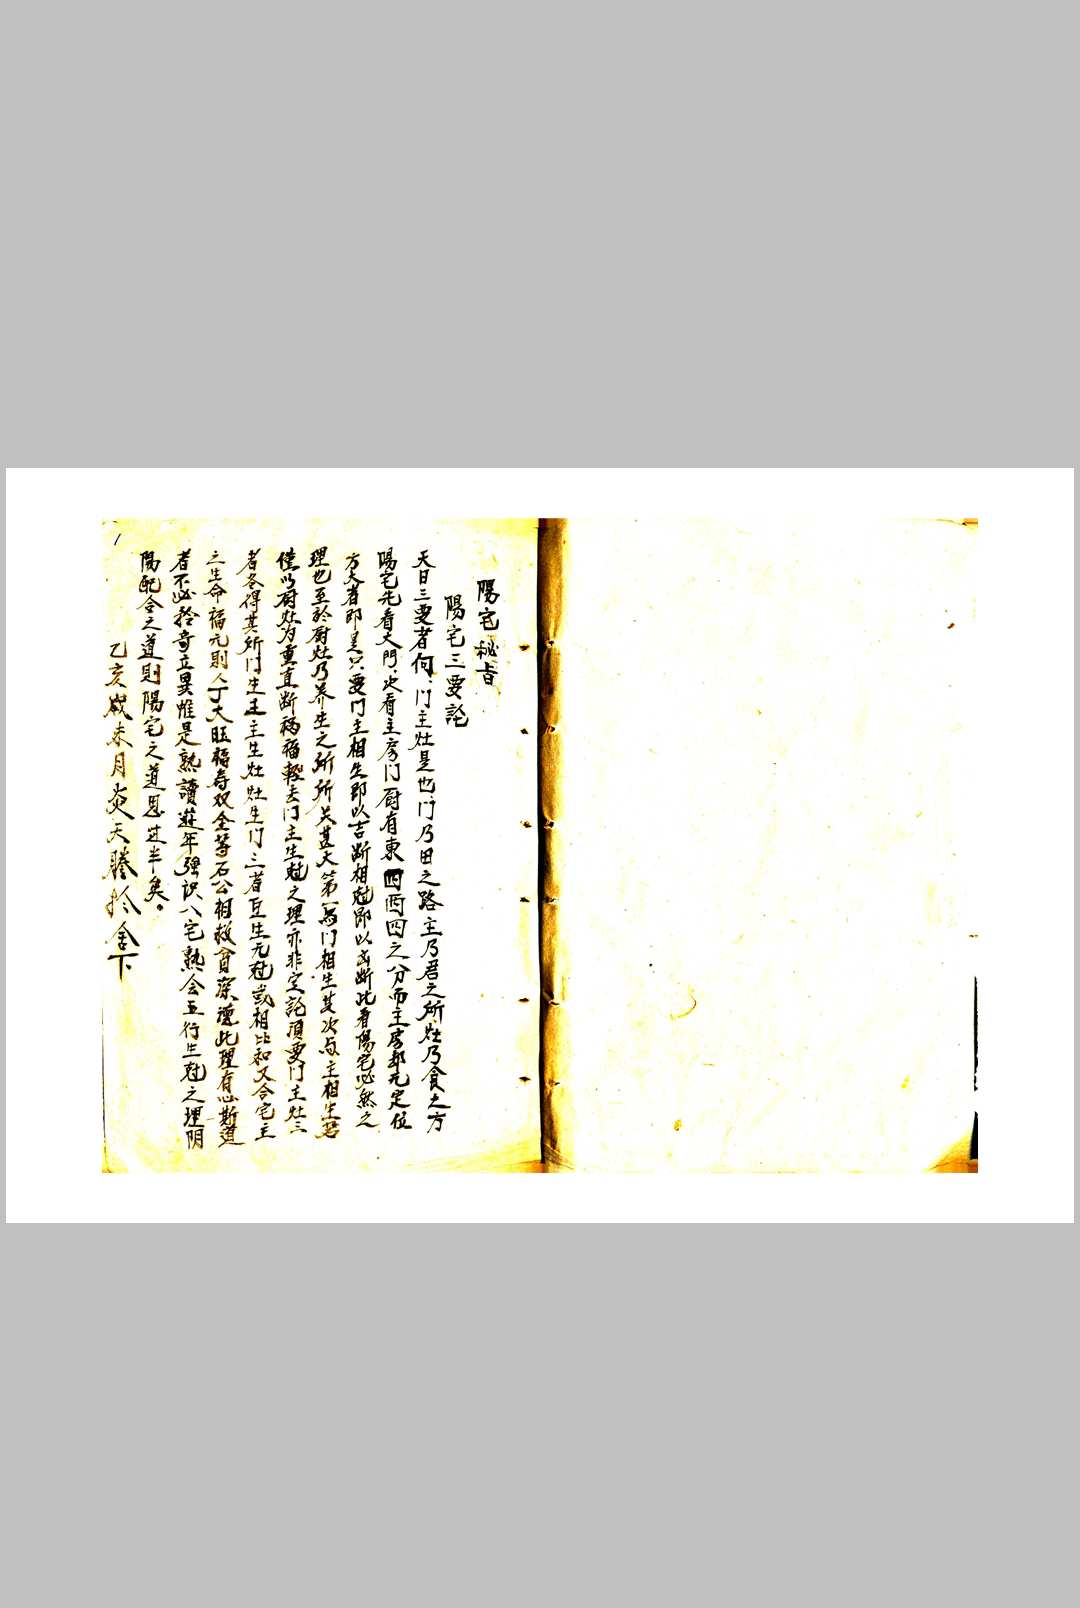 陽宅秘旨
陽宅三要訟
天曰三要者何、门主灶是也、门乃由之路主乃君之所、灶乃食之方
陽宅先看大門、次看主房门厨有東四西四之分而主房却无定位
方大者即是只要门主相生即以吉断相尅即以凶断此看陽宅必然之
理也至於厨灶乃养生之所所关甚大第一為门相生其次與主相生若
僅以厨灶为重直断禍福輕去门主生尅之理亦非定訟須要门主灶三
者各得其所门生主主生灶灶生门三者互生无尅或相比和又合宅主
之生命福元則人丁大旺福寿双全等石公相救貧深魂此理有心斯道
者不必矜奇立異惟是熟讀遊年強识八宅熟会五行生尅之理阴
陽配合之道則陽宅之道思过半矣。
乙亥歲未月炎天謄於舍下